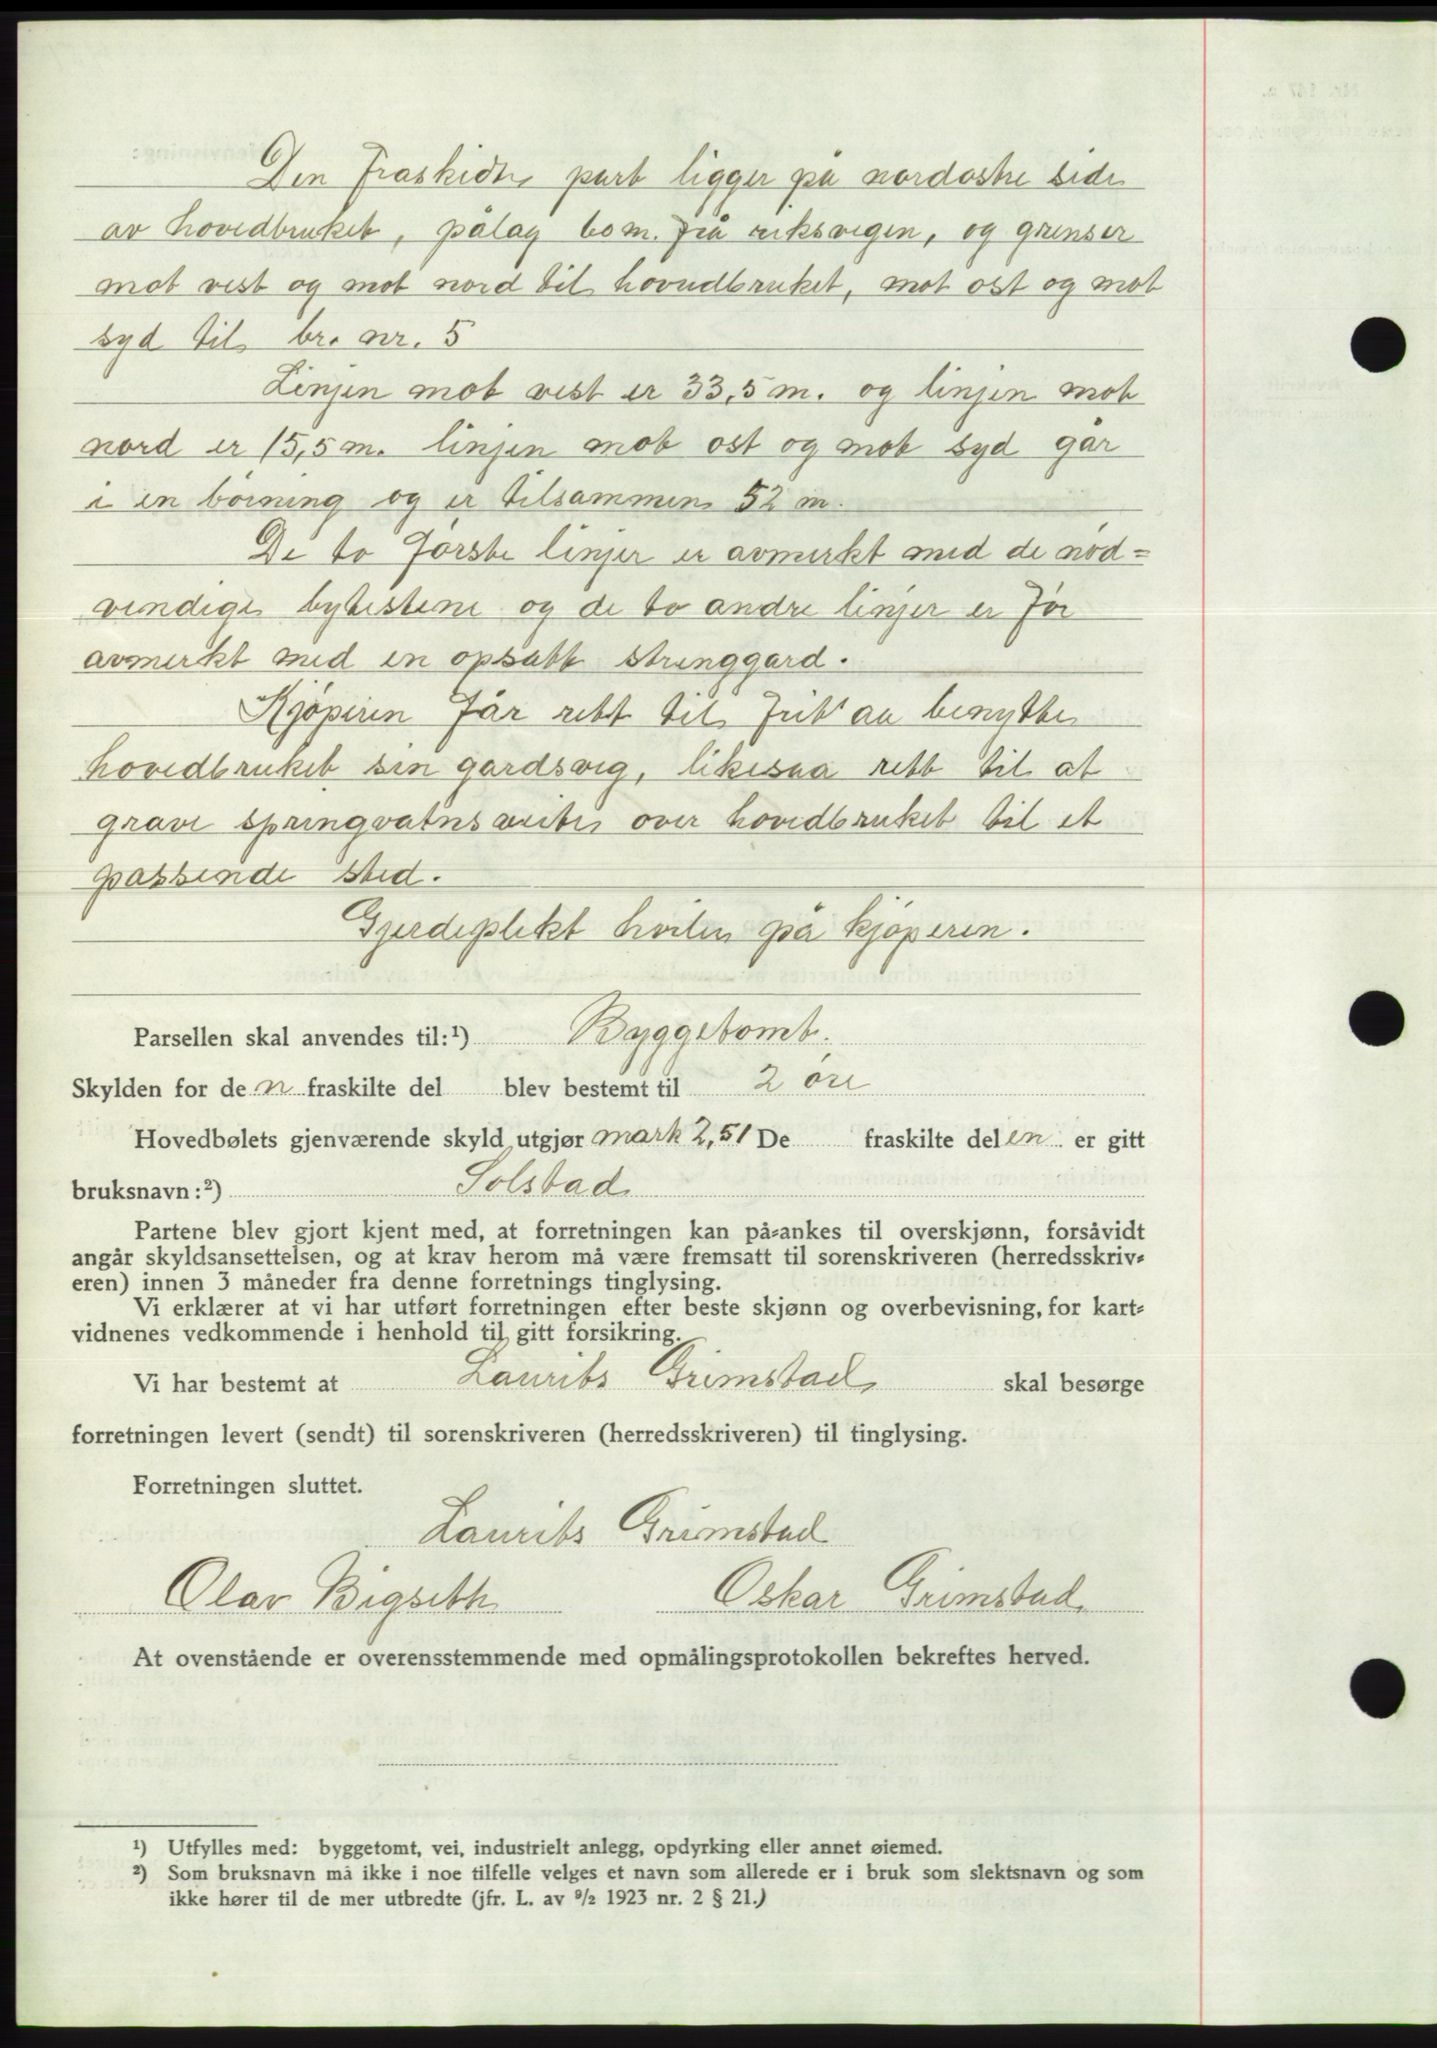 Den fraskidte part ligger på nordostre side
av hovedbruket, pålag 60 m. frå riksvegen, og grenser
mot vest og mot nord til hovudbruket, mot ost og mot
syd til br. nr. 5
Linjen mot vest er 33,5 m. og linjen mot
nord er 15,5 m. linjen mot ost og mot syd går
i en börning og er tilsammen 52 m.
De to förste linjer er avmerkt med de nöd=
vendige bytestene og de to andre linjer er för
avmerkt med en opsatt strenggard.
Kjöperen får rett til frit aa benytte
hovedbruket sin gardsveg, likesaa rett til at
grave springvatnsveite over hovedbruket til et
passende sted.
Gjerdeplikt hviler på kjöperen.
Parsellen skal anvendes til:¹) Byggetomt.
Skylden for de n fraskilte del blev bestemt til 2 öre
Hovedbølets gjenværende skyld utgjør mark 2,51 De fraskilte del en er gitt
bruksnavn:²) Solstad
Partene blev gjort kjent med, at forretningen kan på-ankes til overskjønn, forsåvidt
angår skyldsansettelsen, og at krav herom må være fremsatt til sorenskriveren (herredsskriv-
eren) innen 3 måneder fra denne forretnings tinglysing.
Vi erklærer at vi har utført forretningen efter beste skjønn og overbevisning, for kart-
vidnenes vedkommende i henhold til gitt forsikring.
Vi har bestemt at Laurits Grimstad skal besørge
forretningen levert (sendt) til sorenskriveren (herredsskriveren) til tinglysing.
Forretningen sluttet.
Laurits Grimstad
Olav Bigseth Oskar Grimstad
At ovenstående er overensstemmende med opmålingsprotokollen bekreftes herved.
¹) Utfylles med: byggetomt, vei, industrielt anlegg, opdyrking eller annet øiemed.
²) Som bruksnavn må ikke i noe tilfelle velges et navn som allerede er i bruk som slektsnavn og som
ikke hører til de mer utbredte (jfr. L. av 9/2 1923 nr. 2 § 21.)